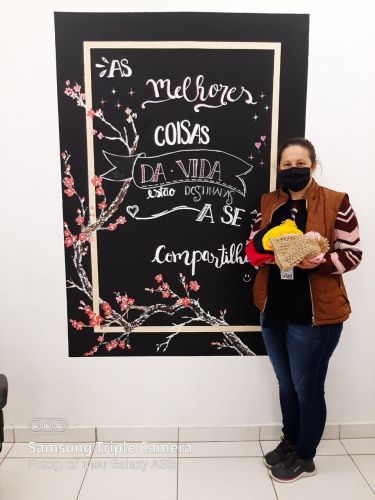 AS
Melhores
COISAS
DA VIDA
estão DESTINADAS
A SE
Compartilha
Samsung Triple Camera
Fotog. c/ meu Galaxy A20s